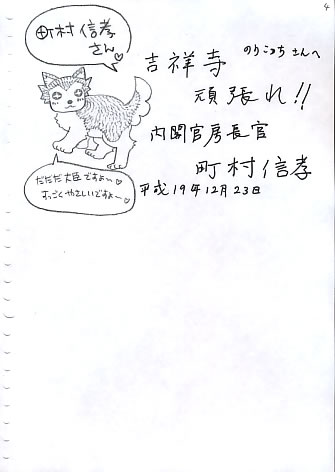 4
町村信孝
さん
吉祥寺 のりこっちさんへ
頑張れ!!
内閣官房長官
町村信孝
平成19年12月23日
だだだ大臣ですぉ〜♡
すっごくやさしいですぉ〜♡